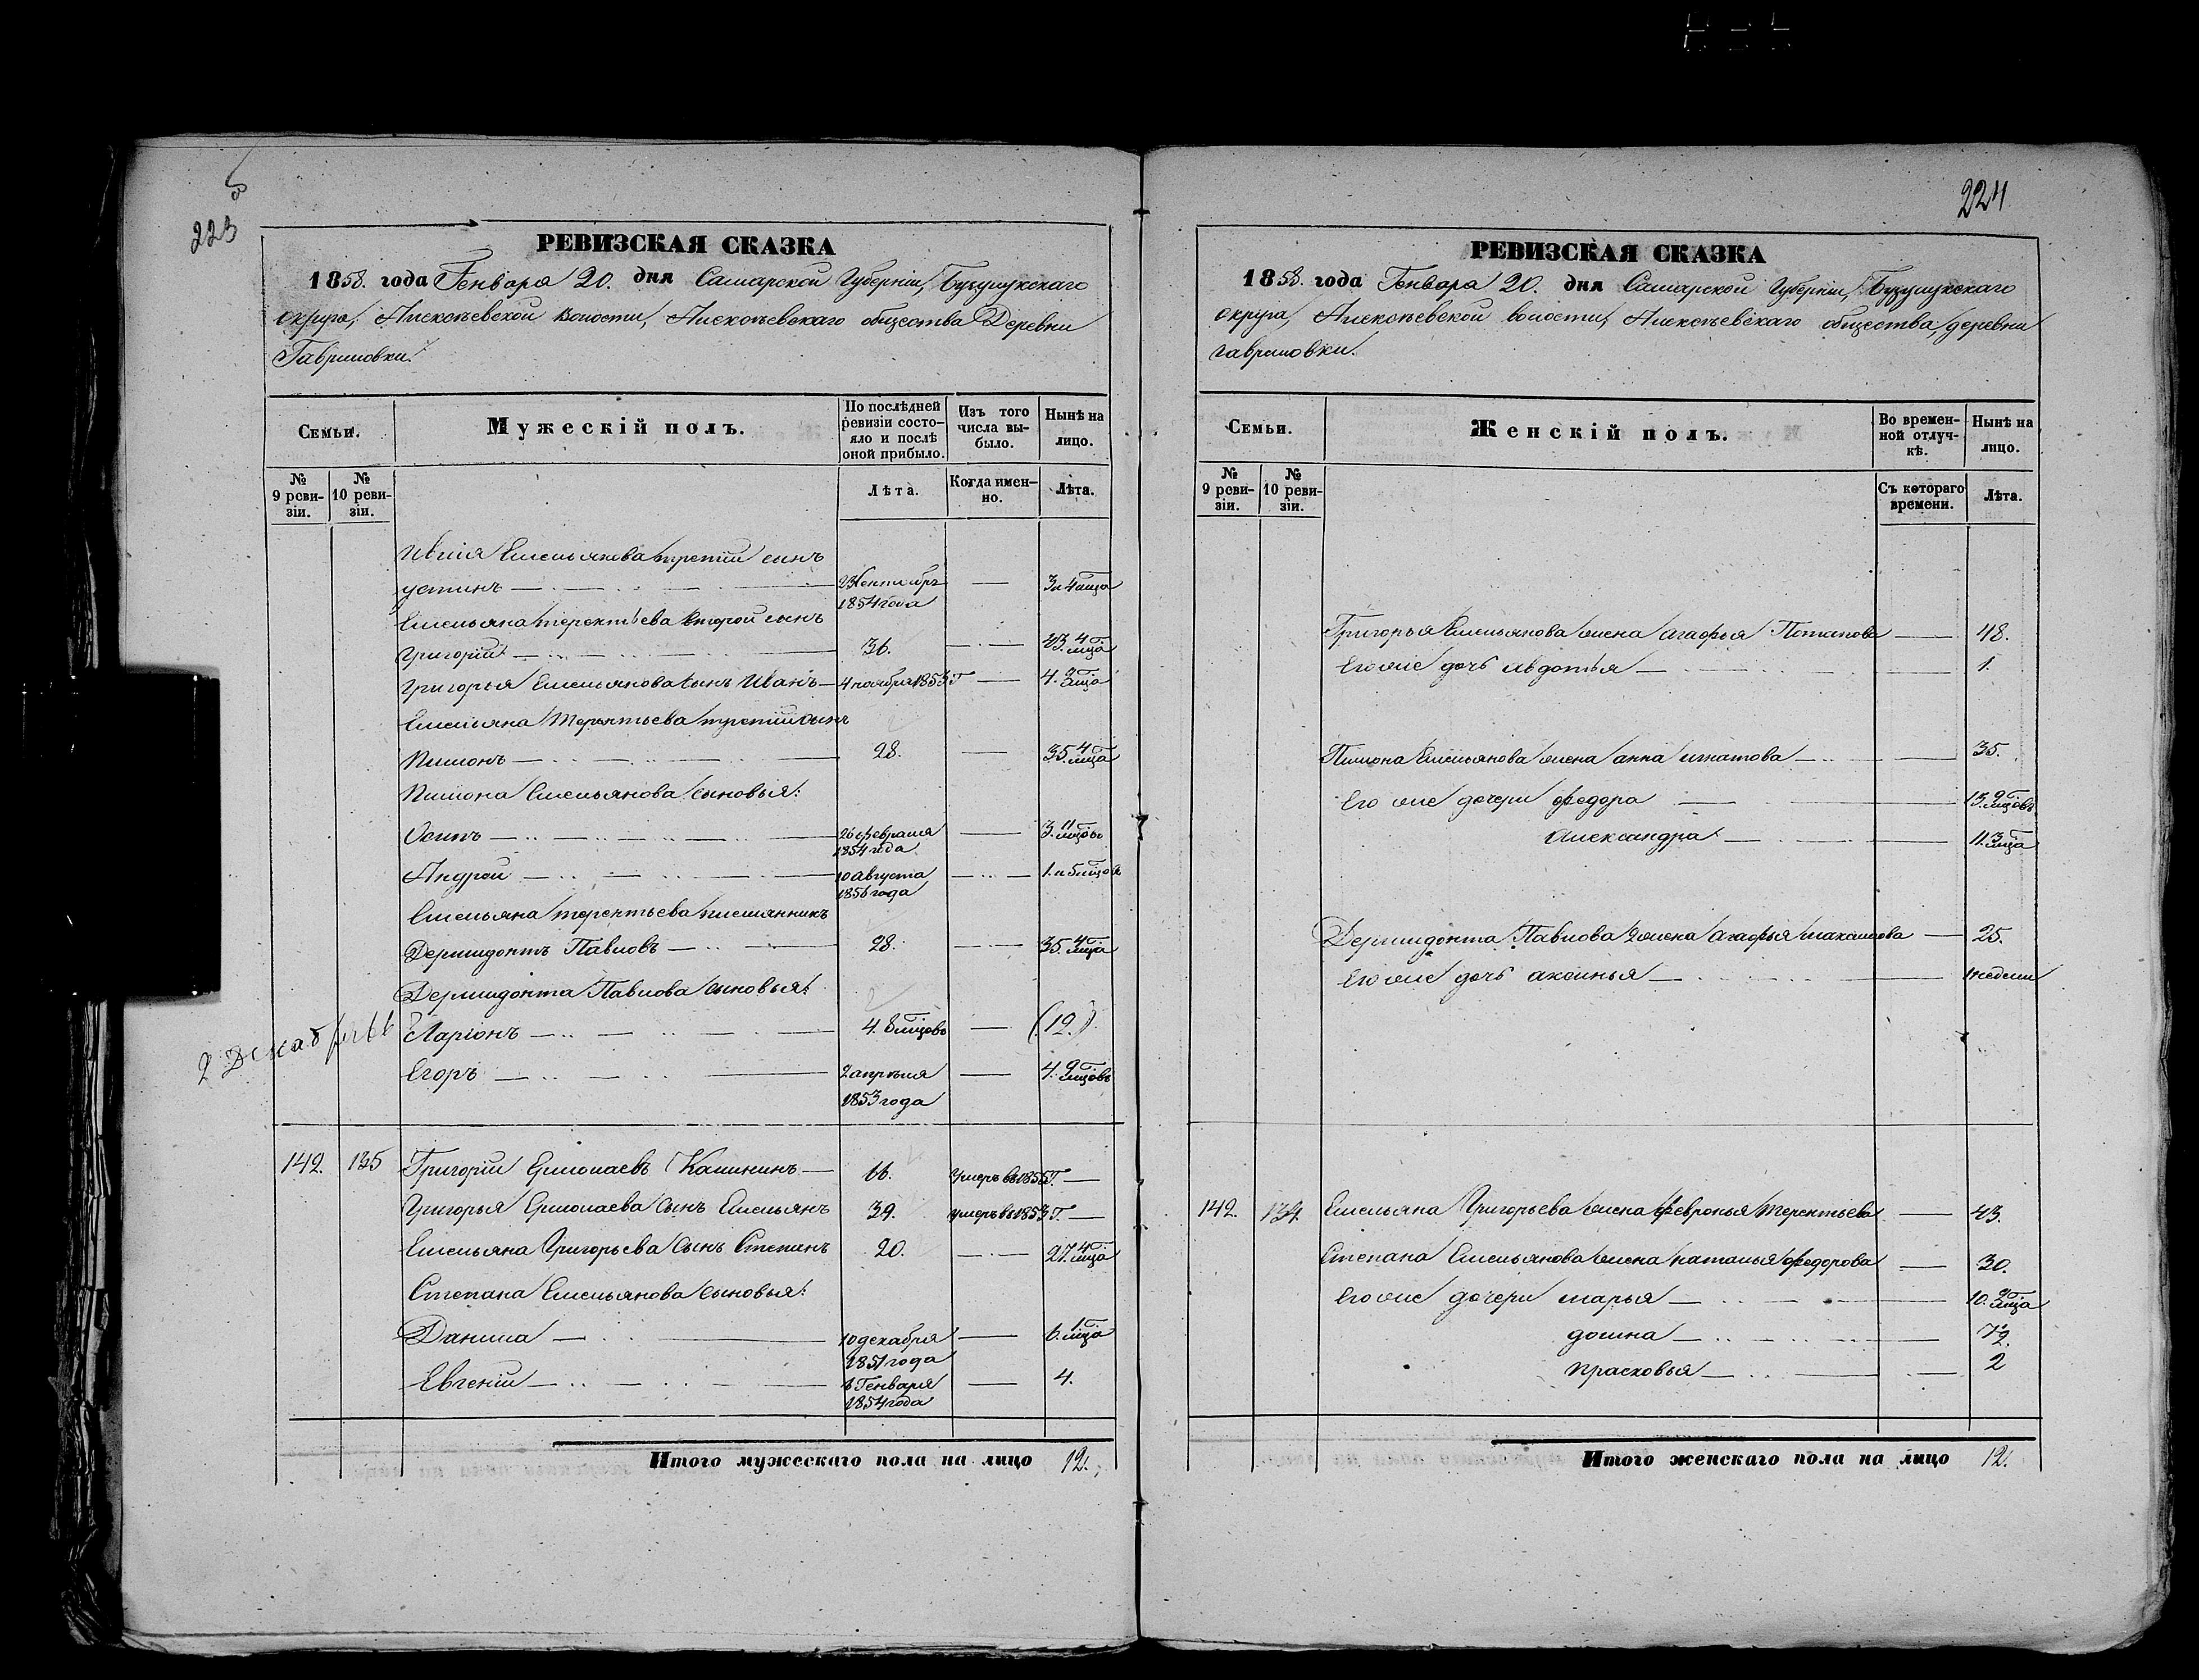 223
РЕВИЗСКАЯ СКАЗКА
1858. года Генваря 20. дня Самарской Губерніи, Бузулукскаго
округа, Алексѣевской волости, Алексѣевскаго общества Деревни
Гавриловки.
Семьи.
Мужескій полъ.
По послѣдней ревизіи состояло и послѣ оной прибыло.
Изъ того числа выбыло.
Нынѣ на лицо.
№ 9 ревизіи.
№ 10 ревизіи.
Лѣта.
Когда именно.
Лѣта.
Емельянова третій сынъ
устинъ — 1854 года — 3 и 4 мца
Емельяна терентьева второй сынъ
Григорій — 36. — 43. 4 мца
Григорья Емельянова сынъ Иванъ — 4 ноября 1853 Г — 4. 2 мца
Емельяна Терентьева третій сынъ
Пимонъ — 28. — 35. 4 мца
Пимона Емельянова сыновья:
Осипъ — 26 февраля 1854 года — 3. 11 мцовъ
Андрей — 10 августа 1856 года — 1. и 5 мцовъ
Емельяна терентьева племянникъ
Дермидонтъ Павловъ — 28. — 35. 4 мца
Дермидонта Павлова сыновья:
Ларіонъ — 4. 8 мцовъ — (12.)
Егоръ — 2 апрѣля 1853 года — 4. 9 мцовъ
142. 135 Григорій Ермолаевъ Калининъ — 66. умеръ въ 1855 Г. —
Григорья Ермолаева сынъ Емельянъ 39. умеръ въ 1853 Г. —
Емельяна Григорьева сынъ Степанъ 20. — 27. 4 мца
Степана Емельянова сыновья:
Данила — 10 декабря 1851 года — 6. 1 мца
Евгеній — 8 Генваря 1854 года — 4.
Итого мужескаго пола на лицо 12.
224
РЕВИЗСКАЯ СКАЗКА
1858. года Генвара 20. дня Самарской Губерніи, Бузулукскаго
округа, Алексѣевской волости, Алексѣевскаго общества, деревни
гавриловки.
Семьи.
Женскій полъ.
Во временной отлучкѣ.
Нынѣ на лицо.
№ 9 ревизіи.
№ 10 ревизіи.
Съ котораго времени.
Лѣта.
Григорья Емельянова жена агафья Потапова — 48.
Его же дочь авдотья — 1.
Пимона Емельянова жена анна игнатова — 35.
Его же дочери федора — 15. 9 мцовъ
Александра — 11. 3 мца
Дермидонта Павлова 2 жена агафья максимова — 25.
Его же дочь аксинья — недели
142. 134. Емельяна Григорьева жена февронья терентьева — 43.
Степана Емельянова жена наталья федорова — 30.
Его же дочери марья — 10. 2 мца
домна —
прасковья — 2
Итого женскаго пола на лицо 12.